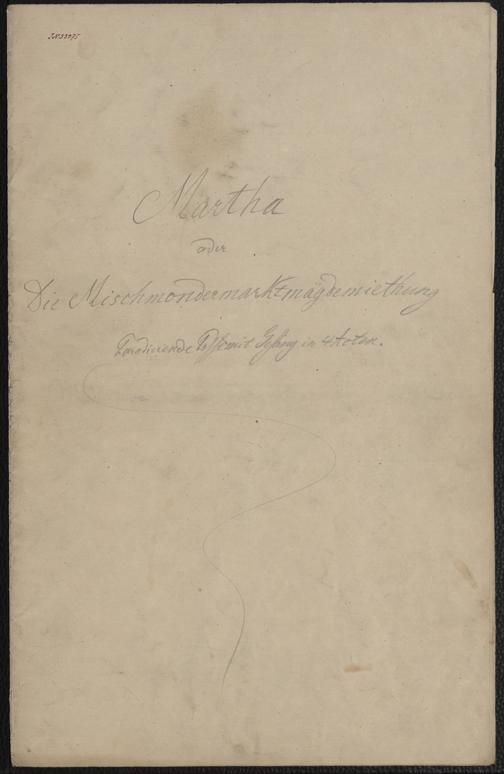 IN 33075
Martha
oder
Die Mischmondermarktmägdemiethung
Parodierende Posse mit Gesang in 4 Acten.